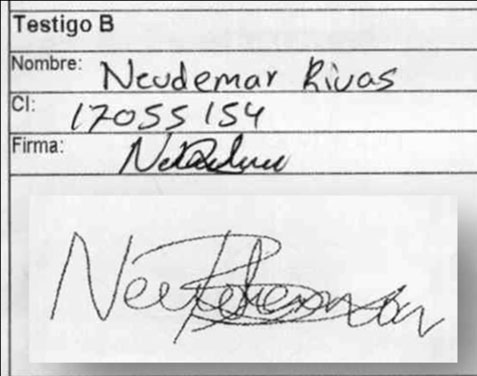 Testigo B
Nombre: Neudemar Rivas
CI: 17055154
Firma: